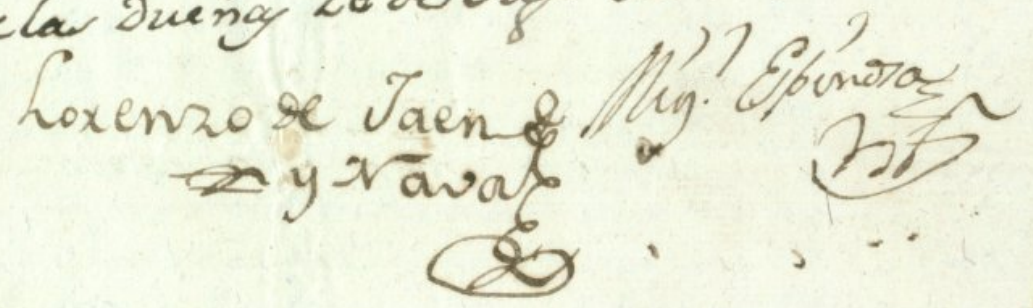 las Dueñas
Lorenzo de Jaen
y Naval
Mig.l Espinosa